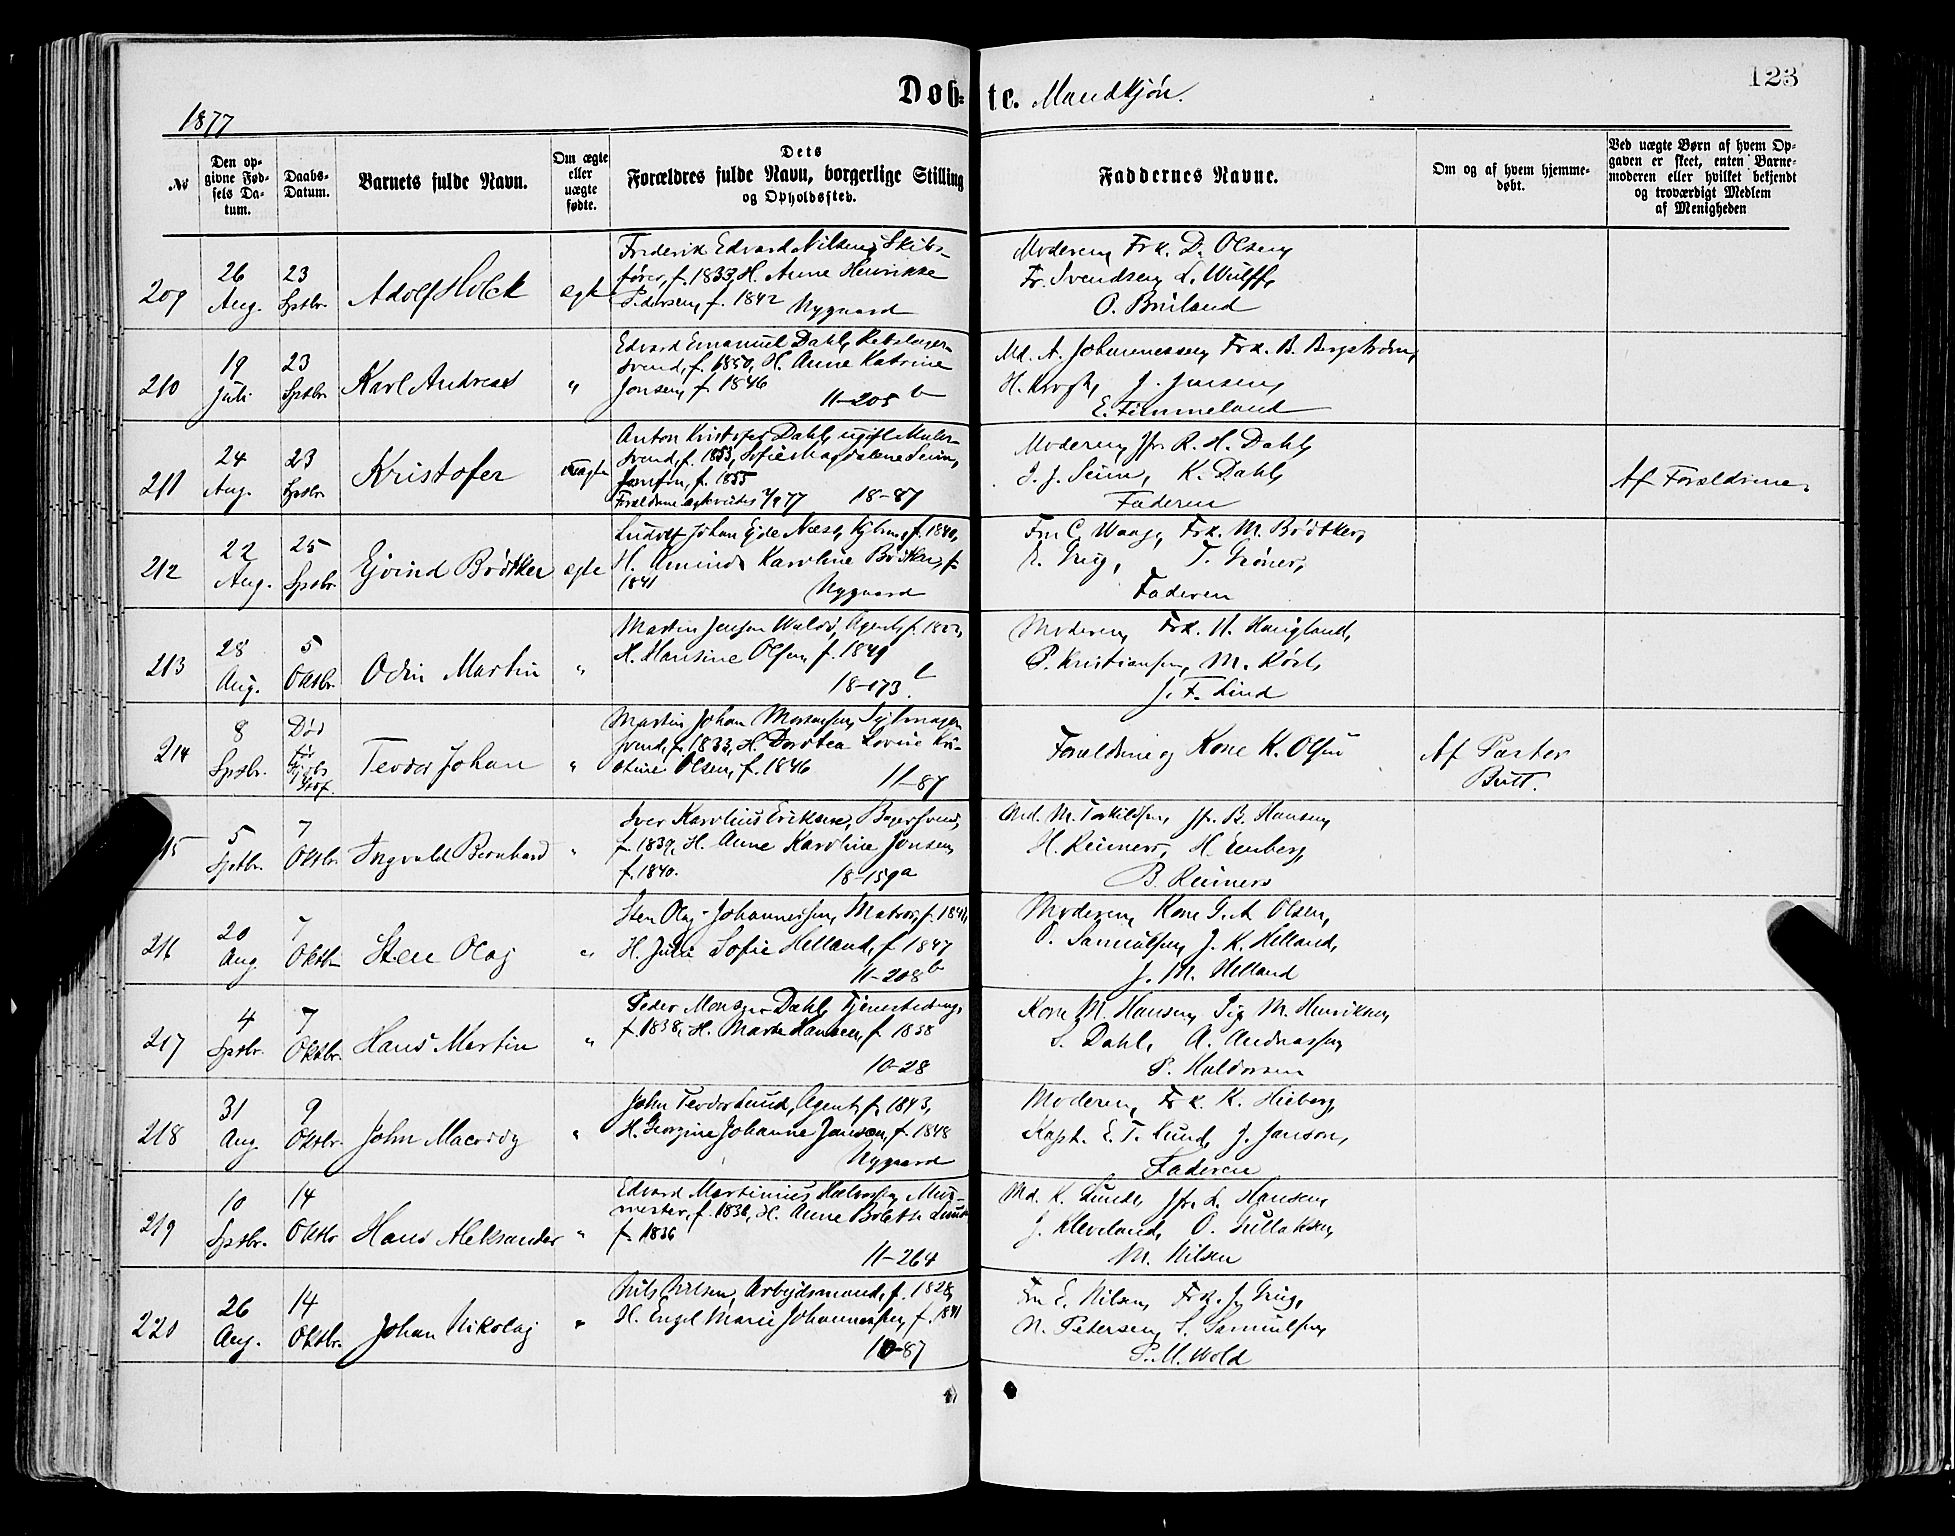 123
Døb=te. Mandkjøn.
1877
№
Den op-
givne Fød-
sels Da-
tum.
Daabs-
Datum.
Barnets fulde Navn.
Om ægte
eller
uægte
fødte.
Dets
Forældres fulde Navn, borgerlige Stilling
og Opholdssted.
Faddernes Navne.
Om og af hvem hjemme-
døbt.
Ved uægte Børn af hvem Op-
gaven er skeet, enten Barne-
moderen eller hvilket bekjendt
og troværdigt Medlem
af Menigheden
209
26
Aug.
23
Sptbr.
Adolf Holck
egte
Frederik Edvard Nilsen, Skibs-
fører, f. 1833, H. Anne Henrikke
Pedersen, f. 1842 Nygaard
Moderen, Frk. D. Olsen,
Fr. Svendsen, L. Wulff,
O. Breiland
210
19
Juli
23
Sptbr
Karl Andreas
"
Edvard Emanuel Dahl, Rebslager-
svend, f. 1850, H. Anne Katrine
Jonsen, f. 1846
11-205 b
Md. A. Johannessen, Frk. B. Bergstrøm,
H. Krogh, J. Jensen,
E. Fimmeland
211
24
Aug.
23
Sptbr.
Kristofer
uægte
Anton Kristofer Dahl, ugift Maler-
svend, f. 1853, Sofie Magdalene Seim,
f. 1855
18-87
Moderen, Jfr. R. H. Dahl,
J. J. Seim, K. Dahl,
Faderen
Af Forældrene.
212
22
Aug.
25
Sptbr.
Ejvind Brødtker
egte
Ludolf Johan Eide Næss, f. 1840,
H. Aminda Karoline Brødtker, f.
1841
Nygaard
Fru C. Waage, Frk. M. Brødtker,
T. Grøner,
Faderen
213
28
Aug.
5
Oktbr.
Odin Martin
"
Martin Jensen Agent, f.
H. Hansine Olsen, f. 1849
18-173
Moderen, Frk. H. Haugland,
P. Kristiansen, M. Røst,
J. F. Lind
214
8
Sptbr.
Død
før
Teodor Johan
"
Martin Johan
svend, f. 1833, H. Dorotea Lovise Kri-
stine Olsen, f. 1846
11-87
Forældrene og Kone K. Olsen
Af Pastor
Butt.
5
Sptbr.
7
Oktbr
Ingvald Bernhard
"
Iver Karolius Eriksen, Bagersvend,
f. 1839, H. Anne Karoline Jonsen,
f. 1840.
18-159a
Md. M. Torkildsen, Jfr. B. Hansen,
H. Reimers, H.
B. Reimers
216
20
Aug
7
Oktbr
Sten Olaj
"
Sten Olaj Johannessen, Matros, f. 1841,
H. Julie Sofie Helland, f. 1847
11-208 b
Moderen, Kone G. A. Olsen,
O. Samuelsen, J. K. Helland,
J. M. Helland
217
4
Sptbr.
7
Oktbr.
Hans Martin
"
Peder Dahl,
f. 1838, H. Marte Hansen, f. 1838
10-28
Kone M. Hansen, Pige M. Henriksen,
S. Dahl, A. Andreassen,
P. Haldorsen
218
31
Aug
9
Oktbr.
John Macody
"
John Teodor Lund, Agent, f. 1843,
H. Georgine Johanne Janson, f. 1848
Nygaard
Moderen, Frk. K. Hieberg,
Kapt. E. T. Lund, J. Janson,
Faderen
219
10
Sptbr.
14
Oktbr
Hans Aleksander
"
Edvard Martinius Halvorsen, Mur-
mester, f. 1836, H. Anne Boleth Lund
f. 1836
11-264
Md. K. Lunde, Jfr. L. Hansen,
J. Kleveland, O. Gullaksen,
M. Nilsen
220
26
Aug.
14
Oktbr.
Johan Nikolaj
"
Nils Nilsen, Arbejdsmand, f. 1828,
H. Engel Marie Johannessen, f. 1841
10-87
Fru E. Nilsen, Frk. J. Grieg,
N. Petersen, S. Samuelsen,
P. M. Wold